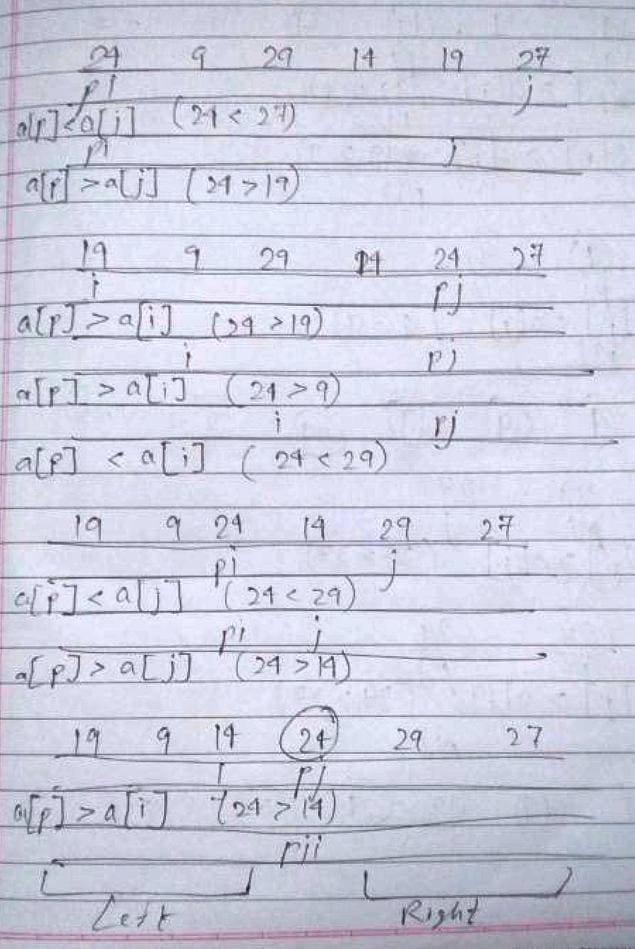 24 9 29 14 19 27
pi j
a[p]<a[j] (24 < 27)
pi j
a[p] > a[j] (24 > 19)
19 9 29 14 24 27
i pj
a[p] > a[i] (24 > 19)
i pj
a[p] > a[i] (24 > 9)
i pj
a[p] < a[i] (24 < 29)
19 9 24 14 29 27
pi j
a[p] < a[j] (24 < 29)
pi j
a[p] > a[j] (24 > 14)
19 9 14 24 29 27
i pj
a[p] > a[i] (24 > 14)
pij
Left Right